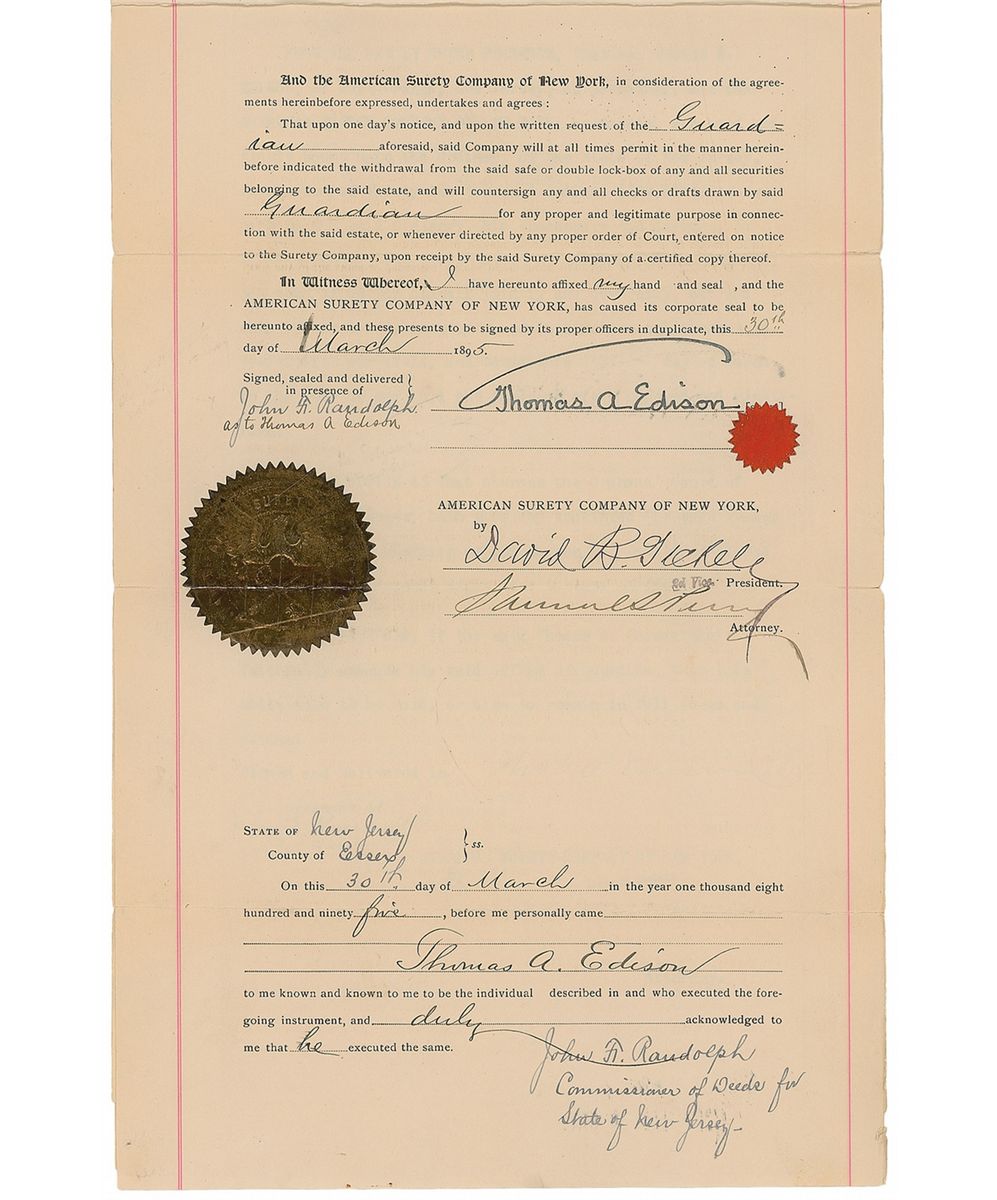 And the American Surety Company of New York, in consideration of the agree-
ments hereinbefore expressed, undertakes and agrees :
That upon one day's notice, and upon the written request of the Guard=
ian aforesaid, said Company will at all times permit in the manner herein-
before indicated the withdrawal from the said safe or double lock-box of any and all securities
belonging to the said estate, and will countersign any and all checks or drafts drawn by said
Guardian for any proper and legitimate purpose in connec-
tion with the said estate, or whenever directed by any proper order of Court, entered on notice
to the Surety Company, upon receipt by the said Surety Company of a certified copy thereof.
In Witness Whereof, I have hereunto affixed my hand and seal , and the
AMERICAN SURETY COMPANY OF NEW YORK, has caused its corporate seal to be
hereunto affixed, and these presents to be signed by its proper officers in duplicate, this 30th
day of March 1895.
Signed, sealed and delivered }
in presence of
John F. Randolph
as to Thomas A Edison
Thomas A Edison
SURETY
AMERICAN SURETY COMPANY OF NEW YORK,
by
David B.
Vice President.
Attorney.
STATE OF New Jersey
County of Essex } ss.
On this 30th day of March in the year one thousand eight
hundred and ninety five, before me personally came
Thomas A. Edison
to me known and known to me to be the individual described in and who executed the fore-
going instrument, and duly acknowledged to
me that he executed the same.
John F. Randolph
Commissioner of Deeds for
State of New Jersey-